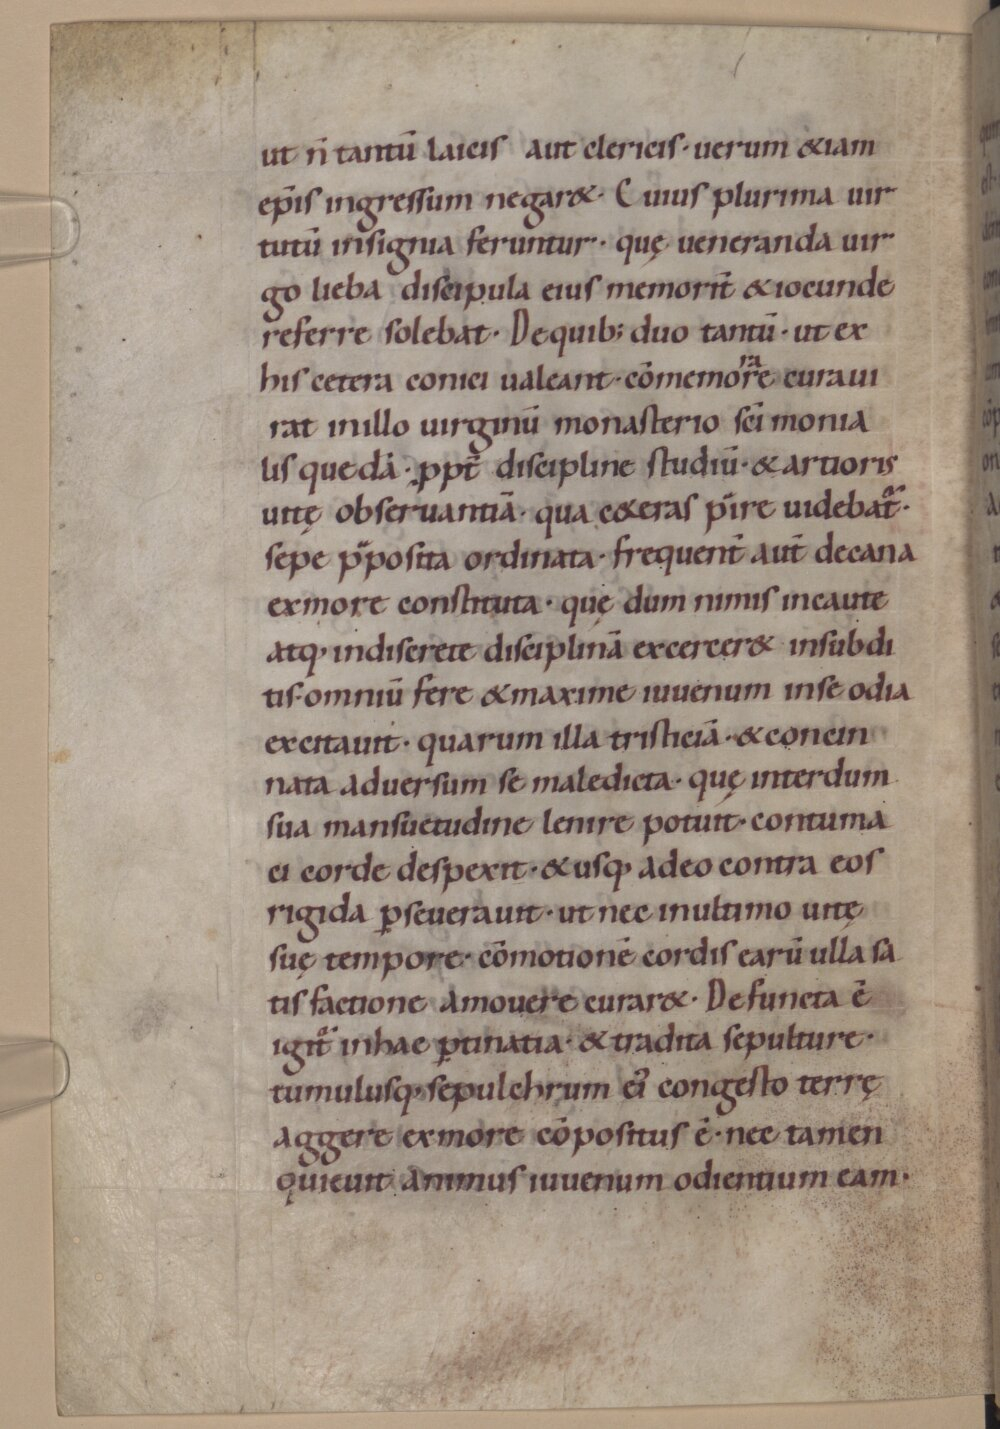 ut n̄ tantū laicis aut clericis· uerum &iam
ep̄is ingressum negar&· Cuius plurima uir
tutū insignia feruntur· quę ueneranda uir
go lieba discipula eius memorit̄ & iocunde
referre solebat· De quib; duo tantū· ut ex
his cetera conici ualeant· cōmemorare curaui
rat in illo uirginū monasterio sc̄i monia
lis quedā· ꝓpt̄ discipline studiū· & artioris
uitę obseruantiā· qua c&eras p̄ire uidebat᷑·
sepe p̄posita ordinata· frequent̄ aut̄ decana
ex more constituta· quę dum nimis incaute
atq; indiscrete disciplinā excercer& in subdi
tis· omniū fere & maxime iuuenum in se odia
excitauit· quarum illa tristiciā· & concin
nata aduersum se maledicta· quę interdum
sua mansuetudine lenire potuit· contuma
ci corde despexit· & usq; adeo contra eos
rigida ꝑseuerauit· ut nec in ultimo uitę
suę tempore· cōmotionē cordis earū ulla sa
tisfactione amouere curar&· Defuncta ē
igit᷑ in hac ꝑtinatia· & tradita sepulture·
tumulusq; sepulchrum ei᷒ congesto terrę
aggere ex more cōpositus ē· nec tamen
quieuit animus iuuenum odientium eam·